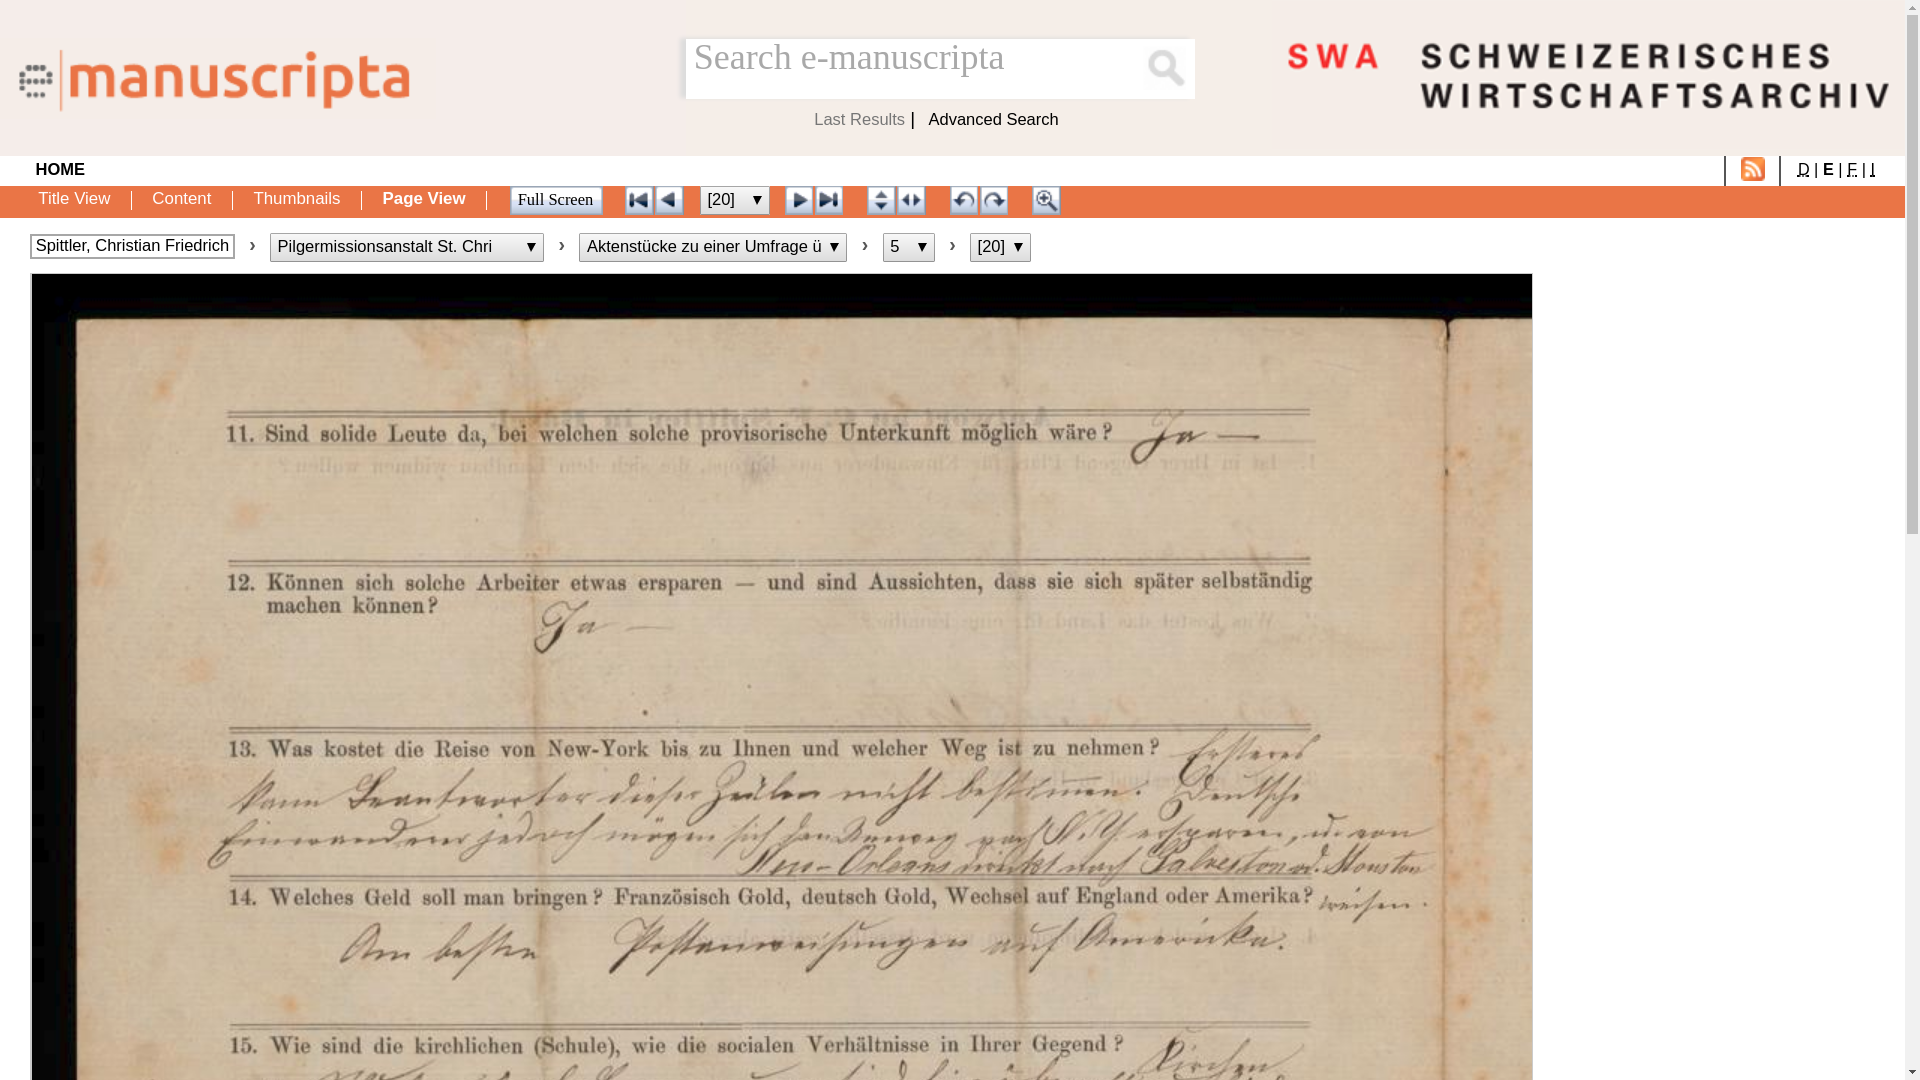 e manuscripta
Search e-manuscripta
Last Results | Advanced Search
SWA SCHWEIZERISCHES
WIRTSCHAFTSARCHIV
HOME
D | E | F | I
Title View
Content
Thumbnails
Page View
Full Screen
[20]
Spittler, Christian Friedrich › Pilgermissionsanstalt St. Chri › Aktenstücke zu einer Umfrage ü › 5 › [20]
11. Sind solide Leute da, bei welchen solche provisorische Unterkunft möglich wäre? Ja —
12. Können sich solche Arbeiter etwas ersparen — und sind Aussichten, dass sie sich später selbständig
machen können?
Ja —
13. Was kostet die Reise von New-York bis zu Ihnen und welcher Weg ist zu nehmen? Ersteres
kann Beantworter dieser Zeilen nicht bestimmen. Deutsche
Einwanderer jedoch mögen sich den Umweg nach N. Y. ersparen, u. von
New-Orleans direkt nach Galveston od. Houston
14. Welches Geld soll man bringen? Französisch Gold, deutsch Gold, Wechsel auf England oder Amerika? reisen.
Am besten Postanweisungen auf Amerika.
15. Wie sind die kirchlichen (Schule), wie die socialen Verhältnisse in Ihrer Gegend? Kirchen